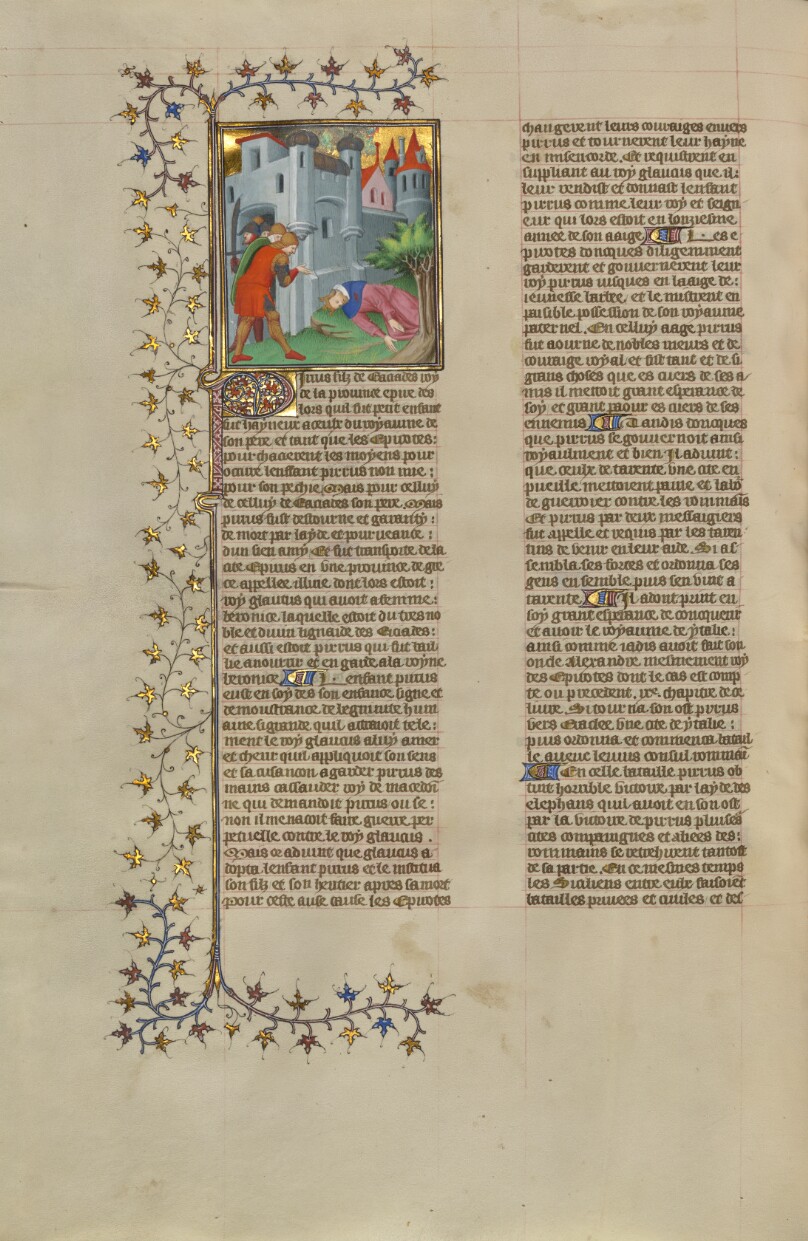 Pirrus filz de Eacides roy
de la prouince epire des
lors quil fut petit enfant
fut hayneux acteur du royaume de
son pere et tant que les Epirotes:
pourchacerent les moyens pour
occire lenffant pirrus non mie:
pour son pechie. Mais pour celluy
de celluy de Eacides son pere. Mais
pirrus fust destourne et garanty:
de mort par layde et pourueance:
dun sien amy Et fut transporte de la
cite Epirus en vne prouince de gre
ce appellee illirie dont lors estoit:
roy glaucus qui auoit a femme:
beronice laquelle estoit du tres no
ble et diuin lignaige des Eacides:
et aussi estoit pirrus qui fut bail
lie a nourrir et en garde a la royne
beronice L enfant pirrus
eust en soy des son enfance signe et
demoustrance de begninite hum
aine si grande quil attraioit tele:
ment le roy glaucus a luy amer
et cherir quil appliquoit son sens
et sa cusancon a garder pirrus des
mains cassander roy de macedoi
ne qui demandoit pirrus ou se:
non il menacoit faire guerre per
petuelle contre le roy glaucus.
Mais ce aduint que glaucus a
dopta lenfant pirrus et le institua
son filz et son heritier apres sa mort
pour ceste cause les Epirotes
changerent leurs couraiges enuers
pirrus et tournerent leur hayne
en misericorde. Et requistrent en
suppliant au roy glaucus que il:
leur rendist et donnast lenfant
pirrus comme leur roy et seign
eur qui lors estoit en lonziesme
annee de son aaige L es e
pirotes doncques diligemment
garderent et gouuernerent leur
roy pirrus iusques en laaige de:
ieunesse et le mistrent en
paisible possession de son royaume
paternel. En celluy aage pirrus
fut aourne de nobles meurs et de
couraige royal et fist tant et de si
grans choses que es cuers de ses a
mis il mettoit grant esperance de
soy et grant paour es cuers de ses
ennemis T andis doncques
que pirrus se gouuernoit ainsi
royaulment et bien Il aduint:
que ceulx de tarente vne cite en
pueille mettoient paine et labo
de guerroier contre les rommais
Et pirrus par deux messaigiers
fut appelle et requis par les taren
tins de venir en leur aide. Si as
sembla ses forces et ordonna ses
gens ensemble puis sen vint a
tarente I l adont print en
soy grant esperance de conquerir
et auoir le royaume de ytalie:
ainsi comme iadis auoit fait son
oncle alexandre mesmement roy
des Epirotes dont le cas est comp
te ou precedent chapitre de ce
liure. Si tourna son ost pirrus
vers Eraclee vne cite de ytalie:
puis ordonna et commenca batail
le auec leuius consul rommai
En celle bataille pirrus ob
tint horrible victoire par layde des
elephans quil auoit en son ost
par la victoire de pirrus pluises
cites compaignes et aliees des:
rommains se retrehirent tantost
de sa partie. En ce mesmes temps
les Siciliens entre eulx faisoiet
batailles priuees et ciuiles et des